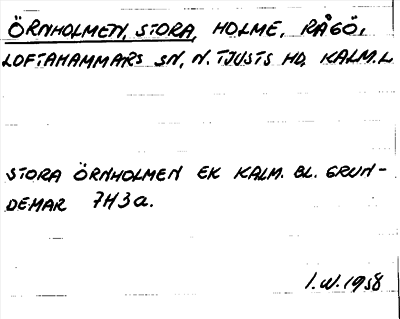 ÖRNHOLMEN, STORA, HOLME, RÅGÖ,
LOFTAHAMMARS SN, N. TJUSTS HD, KALM. L
STORA ÖRNHOLMEN EK KALM. BL. GRUN-
DEMAR 7H3a.
I.W. 1958